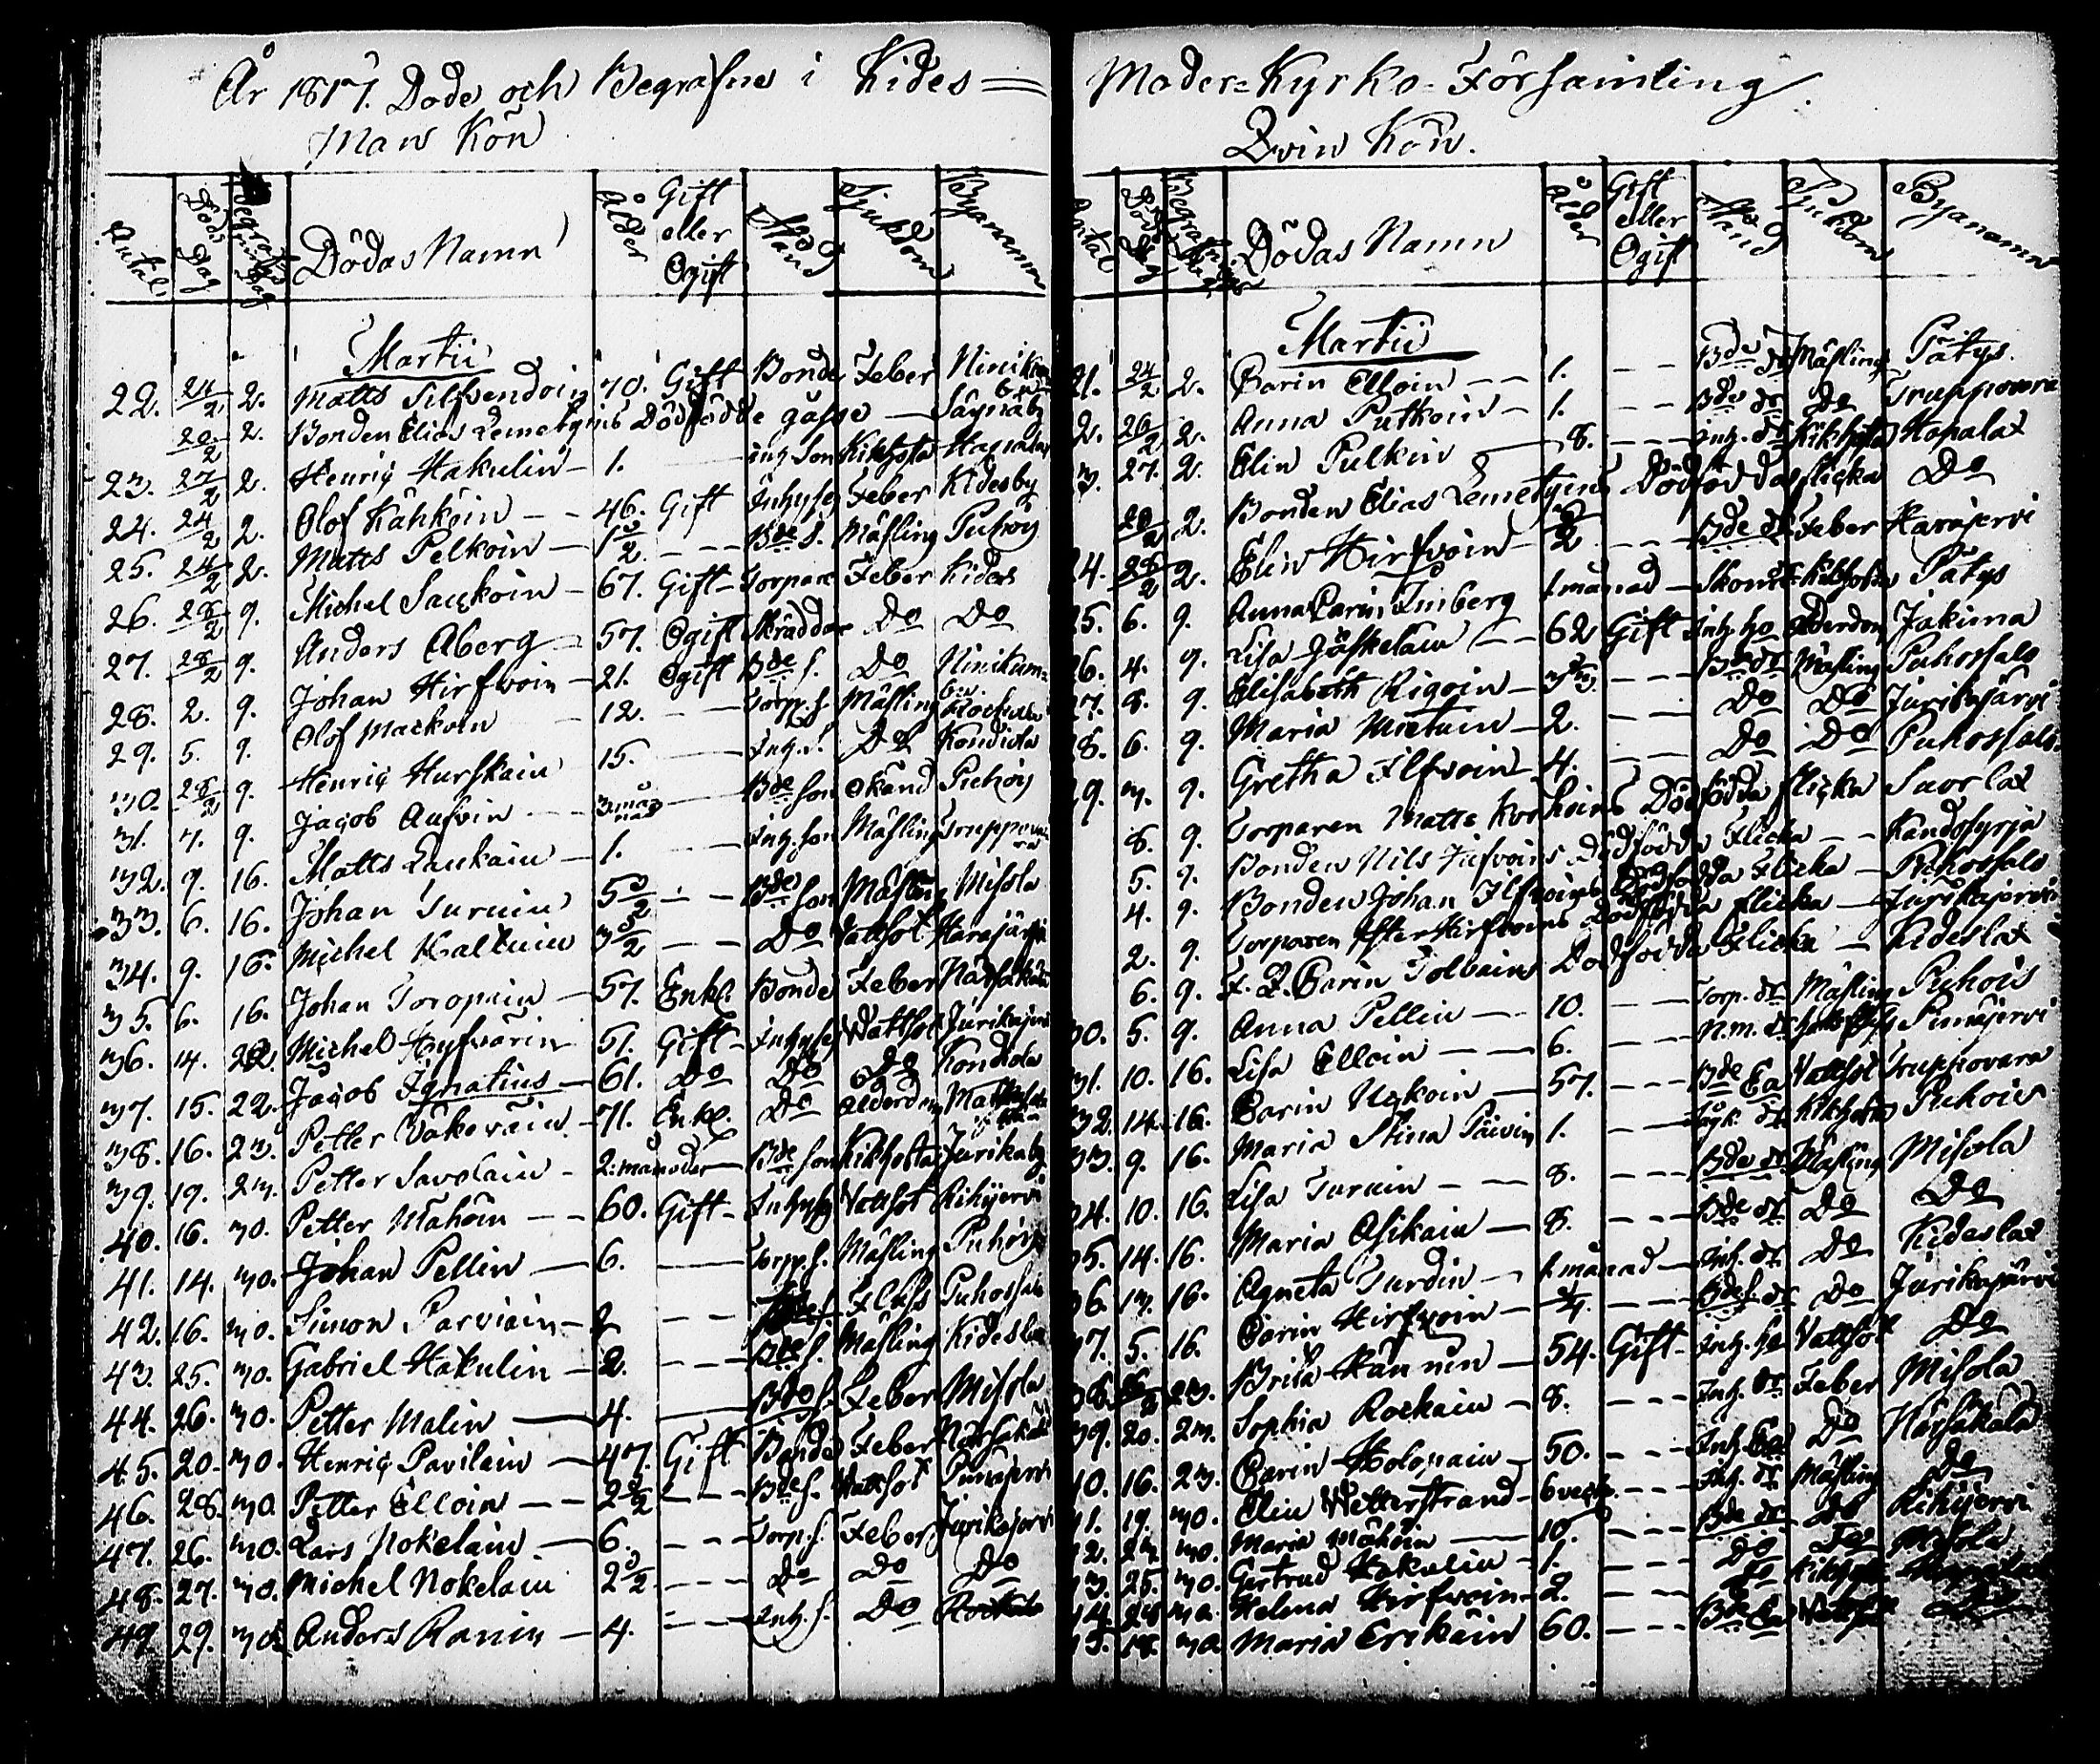 År 1817. Döde och Begrafne i Kides=
Man Kön
Antal. Döds Dag Begrafnings Dag Dödas Namn Ålder Gift eller Ogift Stånd Sjukdom Byanamn
Martii
22. 24/2 2. Matts Silfvendoin 70. Gift Bonde Feber
20/2 2. Bonden Elias Lemetyins Dödfödde gåsse —
23. 27/2 2. Henriç Hakulin — 1. — inh son Kikhosta
24. 24/2 2. Olof Kähköin — 46. Gift Inhyses Feber Kidesby
25. 24/2 2. Matts Pelkoin — 1 3/2 --- Bde s. Mäsling Puhois
26. 28/2 9. Michel Sauçkoin — 67. Gift Torpare Feber Kides
27. 28/2 9. Anders Aberg — 57. Ogift Skräddare Do Do
28. 2. 9. Johan Hirfvoin — 21. Ogift Bde s. Do
29. 5. 9. Olof Mackoin 12. — Torpp. s. Mäsling
30. 28/2 9. Henriç Hurskain 15. — Inh. s. Do Kondiola
31. 7. 9. Jaçob Aufvin — 3 månad — Bde son okänd Puhois
32. 9. 16. Matts Laukain — 1. — Inh. son Mäsling Truppovara
33. 6. 16. Johan Turuin 5 3/2 — Bde son Mäsling Misola
34. 9. 16. Michel Kaltuin 3 3/2 — Do Vattsot Harajärfvi
35. 6. 16. Johan Toropain — 57. Enkl. Bonde Feber
36. 14. 22. Michel Hyfvärin 51. Gift — Inhyses Wattsot Jurikajervi
37. 15. 22. Jaçob Ignatius — 61. Do Do Do Kondiola
38. 16. 23. Petter Väkeväin — 71. Enkl. Do Ålderdom
39. 19. 23. Petter Savolain — 2: månader — Bde son Kikhosta Jurikaby
40. 16. 30. Petter Mähöin — 60. Gift — Inhyses Vattsot Kihijervi
41. 14. 30. Johan Pellin — 6. — Torpp. s. Mäsling Puhois
42. 16. 30. Simon Parviain — 2 — Bde s. Fluss Puhossalo
43. 25. 30. Gabriel Hakulin — 2. --- Bde s. Mäsling Kideslax
44. 26. 30. Petter Malin — 4. — Bde s. Feber Misola
45. 20. 30. Henriç Pavilain — 47. Gift Bonde Feber Närsäkälä
46. 28. 30. Petter Elloin — 2 3/2 --- Bde s. Vattsot
47. 26. 30. Lars Nokelain — 6. --- Torp. s. Feber Jurikajervi
48. 27. 30. Michel Nokelain 2 3/2 --- Do Do Do
49. 29. 30. Anders Ranin — 4. --- Inh. s. Do
Moder=Kyrko-Församling.
Qvin Kön.
Antal Döds Dag Begrafnings Dag Dödas Namn Ålder Gift eller Ogift Stånd Sjukdom Byanamn
Martii
21. 24/2 2. Carin Elloin — 1. — Bde dr Mäsling Pätys
2. 26/2 2. Anna Putkoin — 1. --- Bde dr Do Truppovara
3. 27. 2. Elin Pulkin — 8. --- inh. dr Kikhosta Hapalax
20/2 2. Bonden Elias Lemetyins Dödfödda fliçka Do
4. 28/2 2. Elin Hirfvoin — 3/2 --- Bde dr Feber Harajervi
25. 6. 9. Anna Carin Timberg 1. månad — Kikhosta Pätys
26. 4. 9. Lisa Jäskeläin — 62 Gift Inh. hu Ålderdom Jakima
27. 8. 9. Elisabeth Rigoin — --- Bde dr Mäsling Puhossalo
28. 6. 9. Maria Mietuin — 2. — Do Do Jurikajärvi
29. 3. 9. Gretha Ilfvoin — 4. — Do Do Puhossalo
8. 9. Torparen Matts Korhoins Dödfödda flicka Suorlax
5. 9. Bonden Nils Jufvoins Dödfödda Flicka —
4. 9. Bonden Johan Ilfvoins Dödfödda Flicka — Puhossalo
2. 9. Torparen Hirfvoins Dödfödda flicka — Jurikajervi
6. 9. Carin Tolvains Dödfödda Flicka — Kideslax
30. 5. 9. Anna Pellin — 10. — Torp. dr Mäsling Puhois
31. 10. 16. Lisa Elloin — 6. — N.m. dr
32. 14. 16. Carin Ugkoin — 57. --- Bde Ea Vattsot Truppovara
33. 9. 16. Maria Stina Päivin 1. — Kikhosta Puhois
34. 10. 16. Lisa Turuin — 8. --- Bde dr Mäsling Misola
35. 14. 16. Maria Asikain — 8. --- Bde dr Do Do
36. 13. 16. Agneta Turdin — 1. månad — Inh. dr Do Kideslax
37. 5. 16. Carin Hirfvoin — 3/4. --- Bde dr Do Jurikajärvi
38. 23. Brita Kännin — 54. Gift — Inh. hu Vattsot Do
39. 20. 23. Sophia Rockain — 8. --- Inh. dr Feber Misola
40. 16. 23. Carin Holopain — 50. --- Inh. Ea Do Närsäkälä
41. 19. 30. Elin Wetterstrand — 6 veckor --- Inh. dr Mäsling Do
42. 23. 30. Maria Mähöin — 10. --- Bde dr Do Kihijervi
43. 25. 30. Gertrud Hakulin — 1. --- Do Do Misola
44. 28. 30. Helena Hirfvoin — 2. --- Do
45. 18. 30. Maria Erikäin 60. --- Bde Ea